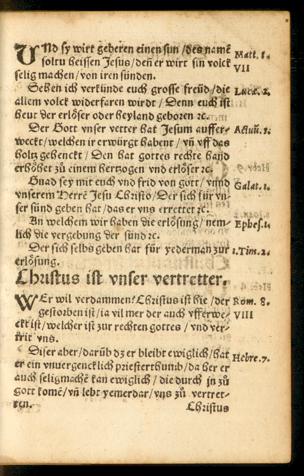 Und sy wirt geberen einen sun / des namē Matt. 1.
soltu heissen Jesus / deñ er wirt sin volck VII
selig machen / von iren sünden.
Sehen ich verkünde euch grosse freüd / die Luce. 2.
allem volck widerfaren wirdt / Denn euch ist
heut der erlöser oder heyland geboren ꝛc.
Der Gott vnser vetter hat Jesum aufferweckt Actuū. 5.
/ welchen ir erwürgt habent / vñ vff das
holtz gehenckt / Den hat gottes rechte hand
erhöhet zu einem hertzogen vnd erlöser ꝛc.
Gnad sey mit euch vnd frid von gott / vnnd Galat. 1.
vnserem Herrē Jesu Christo / Der sich für vnser
sünd geben hat / das er vns errettet ꝛc.
An welchem wir haben die erlösung / nemlich Ephes. 1.
die vergebung der sünd ꝛc.
Der sich selbs geben hat für yederman zur 1. Tim. 2.
erlösung.
Christus ist vnser vertretter.
WEr wil verdammen? Christus ist hie / der Rom. 8.
gestorben ist / ia vil mer der auch vfferweckt VIII
ist / welcher ist zur rechten gottes / vnd vertrit
vns.
Diser aber / darūb dz er bleibt ewiglich / hat Hebre. 7.
er ein vnuergencklich priesterthumb / da her er
auch seligmachē kan ewiglich / die durch jn zů
gott komē / vñ lebt yemerdar / vns zů vertretten.
Christus